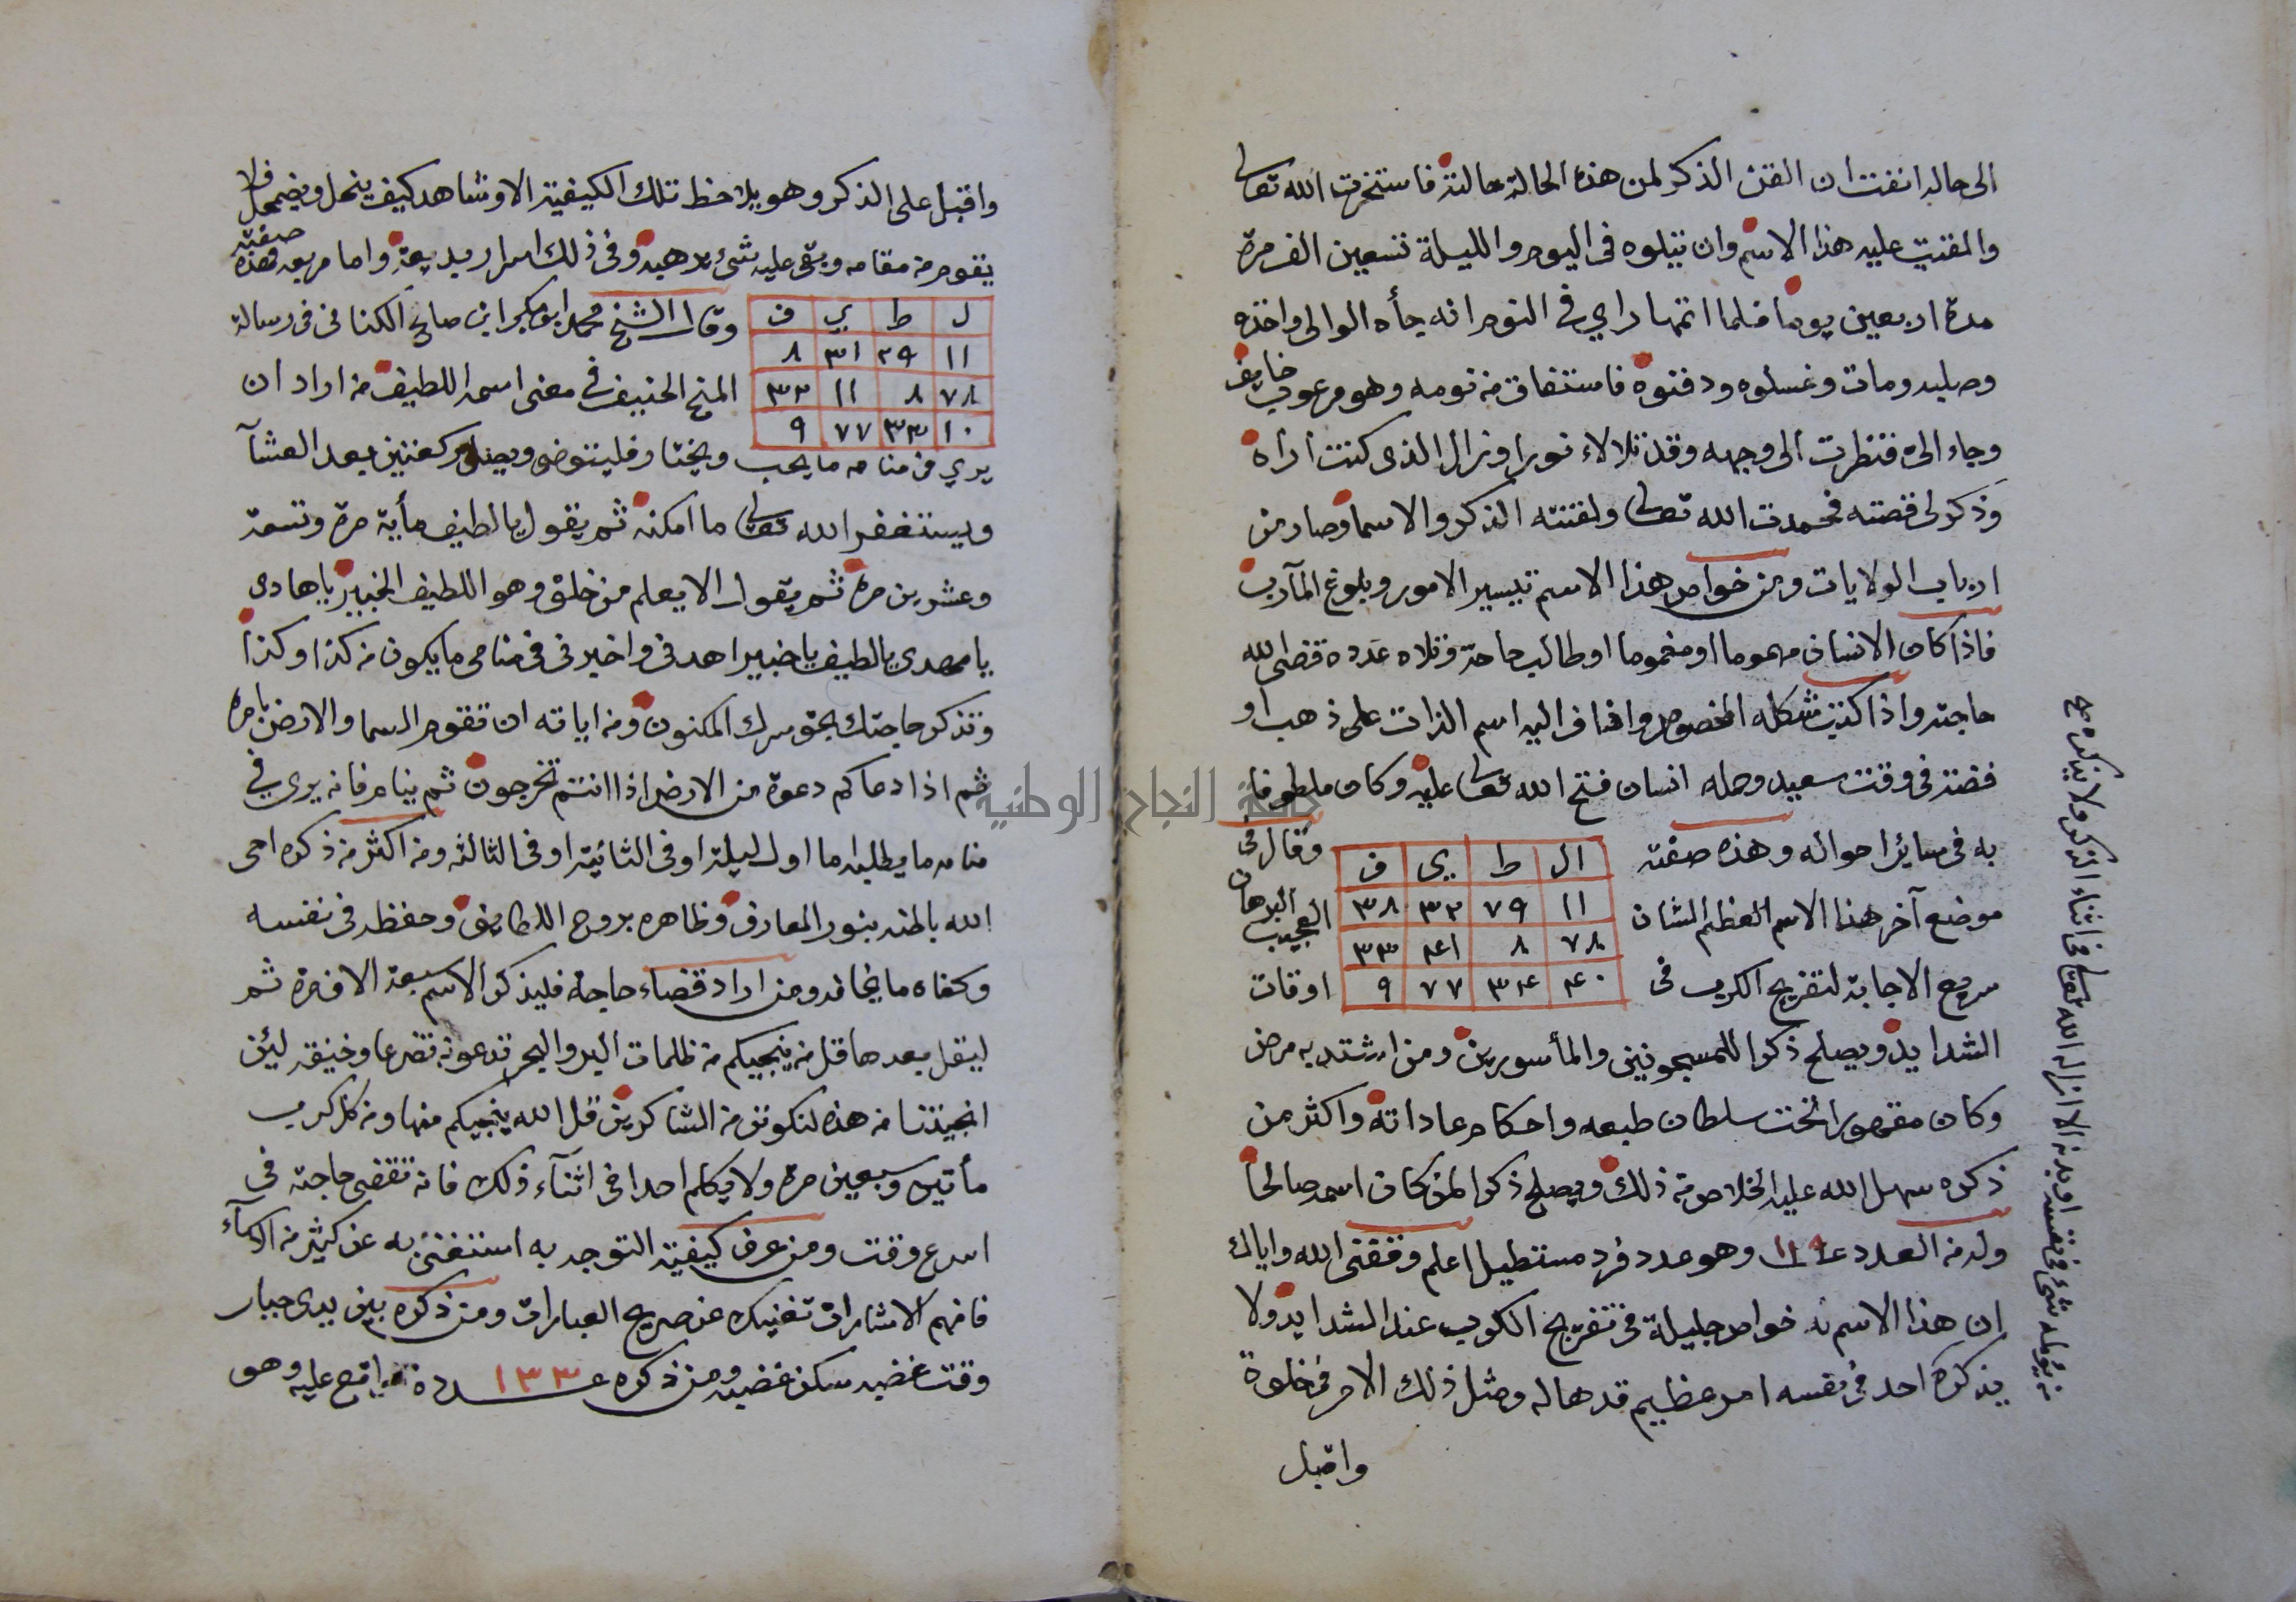 الى حاله انفت ان القن الذكر لمن هذه الحالة حالته فاستخرت الله تعالى
والقنت عليه هذا الاسم وان يتلوه فى اليوم والليلة تسعين الف مرة
مدة اربعين يوما فلما اتمها راي في النوم انه جأه الوالى واخذه
وصلبه ومات وغسلوه ودفنوه فاستفاق من نومه وهو مرعوب خايف
وجاء الى فنظرت الى وجهه وقد تلالاء نورا وزال الذى كنت اراه
وذكر لى قصته فحمدت الله تعالى ولقنته الذكر والاسما وصار من
ارباب الولايات ومن خواص هذا الاسم تيسير الامور وبلوغ المآرب
فاذا كان الانسان مهموما او مغموما او طالب حاجة وتلاه عدده قضى الله
حاجته واذا كتبت شكله المخصوص واضاف اليه اسم الذات على ذهب او
فضة فى وقت سعيد وحمله انسان فتح الله تعالى عليه وكان ملطوفا
به فى سائر احواله وهذه صفته
وقال فى البرهان العجيب
ال ط ي ف
١١ ٧٩ ٣٢ ٣٨
٧٨ ٨ ٤١ ٣٣
٤٠ ٣٤ ٧٧ ٩
موضع آخر هذا الاسم العظيم الشان
سريع الاجابة لتفريج الكرب فى اوقات
الشدايد ويصلح ذكرا للمسجونين والمأسورين ومن اشتد به مرض
وكان مقهورا تحت سلطان طبعه واحكام عاداته واكثر من
ذكره سهل الله عليه الخلاص من ذلك ويصلح ذكرا لمن كان اسمه صالحا
وله من العدد وهو عدد فرد مستطيل اعلم وفقنى الله واياك
ان هذا الاسم له خواص جليلة فى تفريج الكرب عند الشدايد ولا
يذكره احد فى نفسه امر عظيم قد هاله ومثل ذلك الامر فى خلوة
واقبل
من يؤلمه شئ فى نفسه او بدنه الا ازاله الله تعالى فى اثناء الذكر ولا يذكره
واقبل على الذكر وهو يلاحظ تلك الكيفية الا وشاهد كيف ينحل ويضمحل فلا
يقوم من مقامه وبقى عليه شئ يرهبه وفى ذلك اسرار بديعة واما مربعه فهذه صفته
ل ط ي ف
١١ ٢٩ ٣١ ٨
٧٨ ٨ ١١ ٣٣
١٠ ٣٣ ٧٧ ٩
وقال الشيخ محمد ابو بكر ابن صالح الكتانى فى رسالة
المنح الحنيف في معنى اسمه اللطيف من اراد ان
يري فى منامه ما يحب ويختار فليتوضى ويصلى ركعتين بعد العشآ
ويستغفر الله تعالى ما امكنه ثم يقول يا لطيف مأية مرة وتسعة
وعشرين مرة ثم يقول الا يعلم من خلق وهو اللطيف الخبير يا هادى
يا مهدى يا لطيف يا خبير اهدنى واخبرنى فى منامى ما يكون من كذا وكذا
وتذكر حاجتك بحق سرك المكنون ومن اياته ان تقوم السما والارض بامره
ثم اذا دعاكم دعوة من الارض اذا انتم تخرجون ثم ينام فانه يرى في
منامه ما يطلبه اما اول ليلة او فى الثانية او فى الثالثة ومن اكثر من ذكره احى
الله باطنه بنور المعارف وظاهره بروح اللطايف وحفظه فى نفسه
وكفاه ما يخافه ومن اراد قضاء حاجة فليذكر الاسم سبعة الاف مرة ثم
ليقل بعدها قل من ينجيكم من ظلمات البر والبحر تدعونه تضرعا وخفية لئن
انجيتنا من هذه لنكونن من الشاكرين قل الله ينجيكم منها ومن كل كرب
مأتين وسبعين مرة ولا يكلم احدا فى اثنآء ذلك فانه تقضى حاجته فى
اسرع وقت ومن عرف كيفية التوجه به استغنى به عن كثير من الاسمآء
فافهم الاشارات تغنيك عن صريح العبارات ومن ذكره بين يدى جبار
وقت غضبه سكن غضبه ومن ذكره عدده ١٣٣ وهو